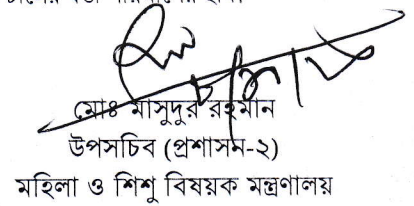 মোঃ মাসুদুর রহমান
উপসচিব (প্রশাসন-২)
মহিলা ও শিশু বিষয়ক মন্ত্রণালয়